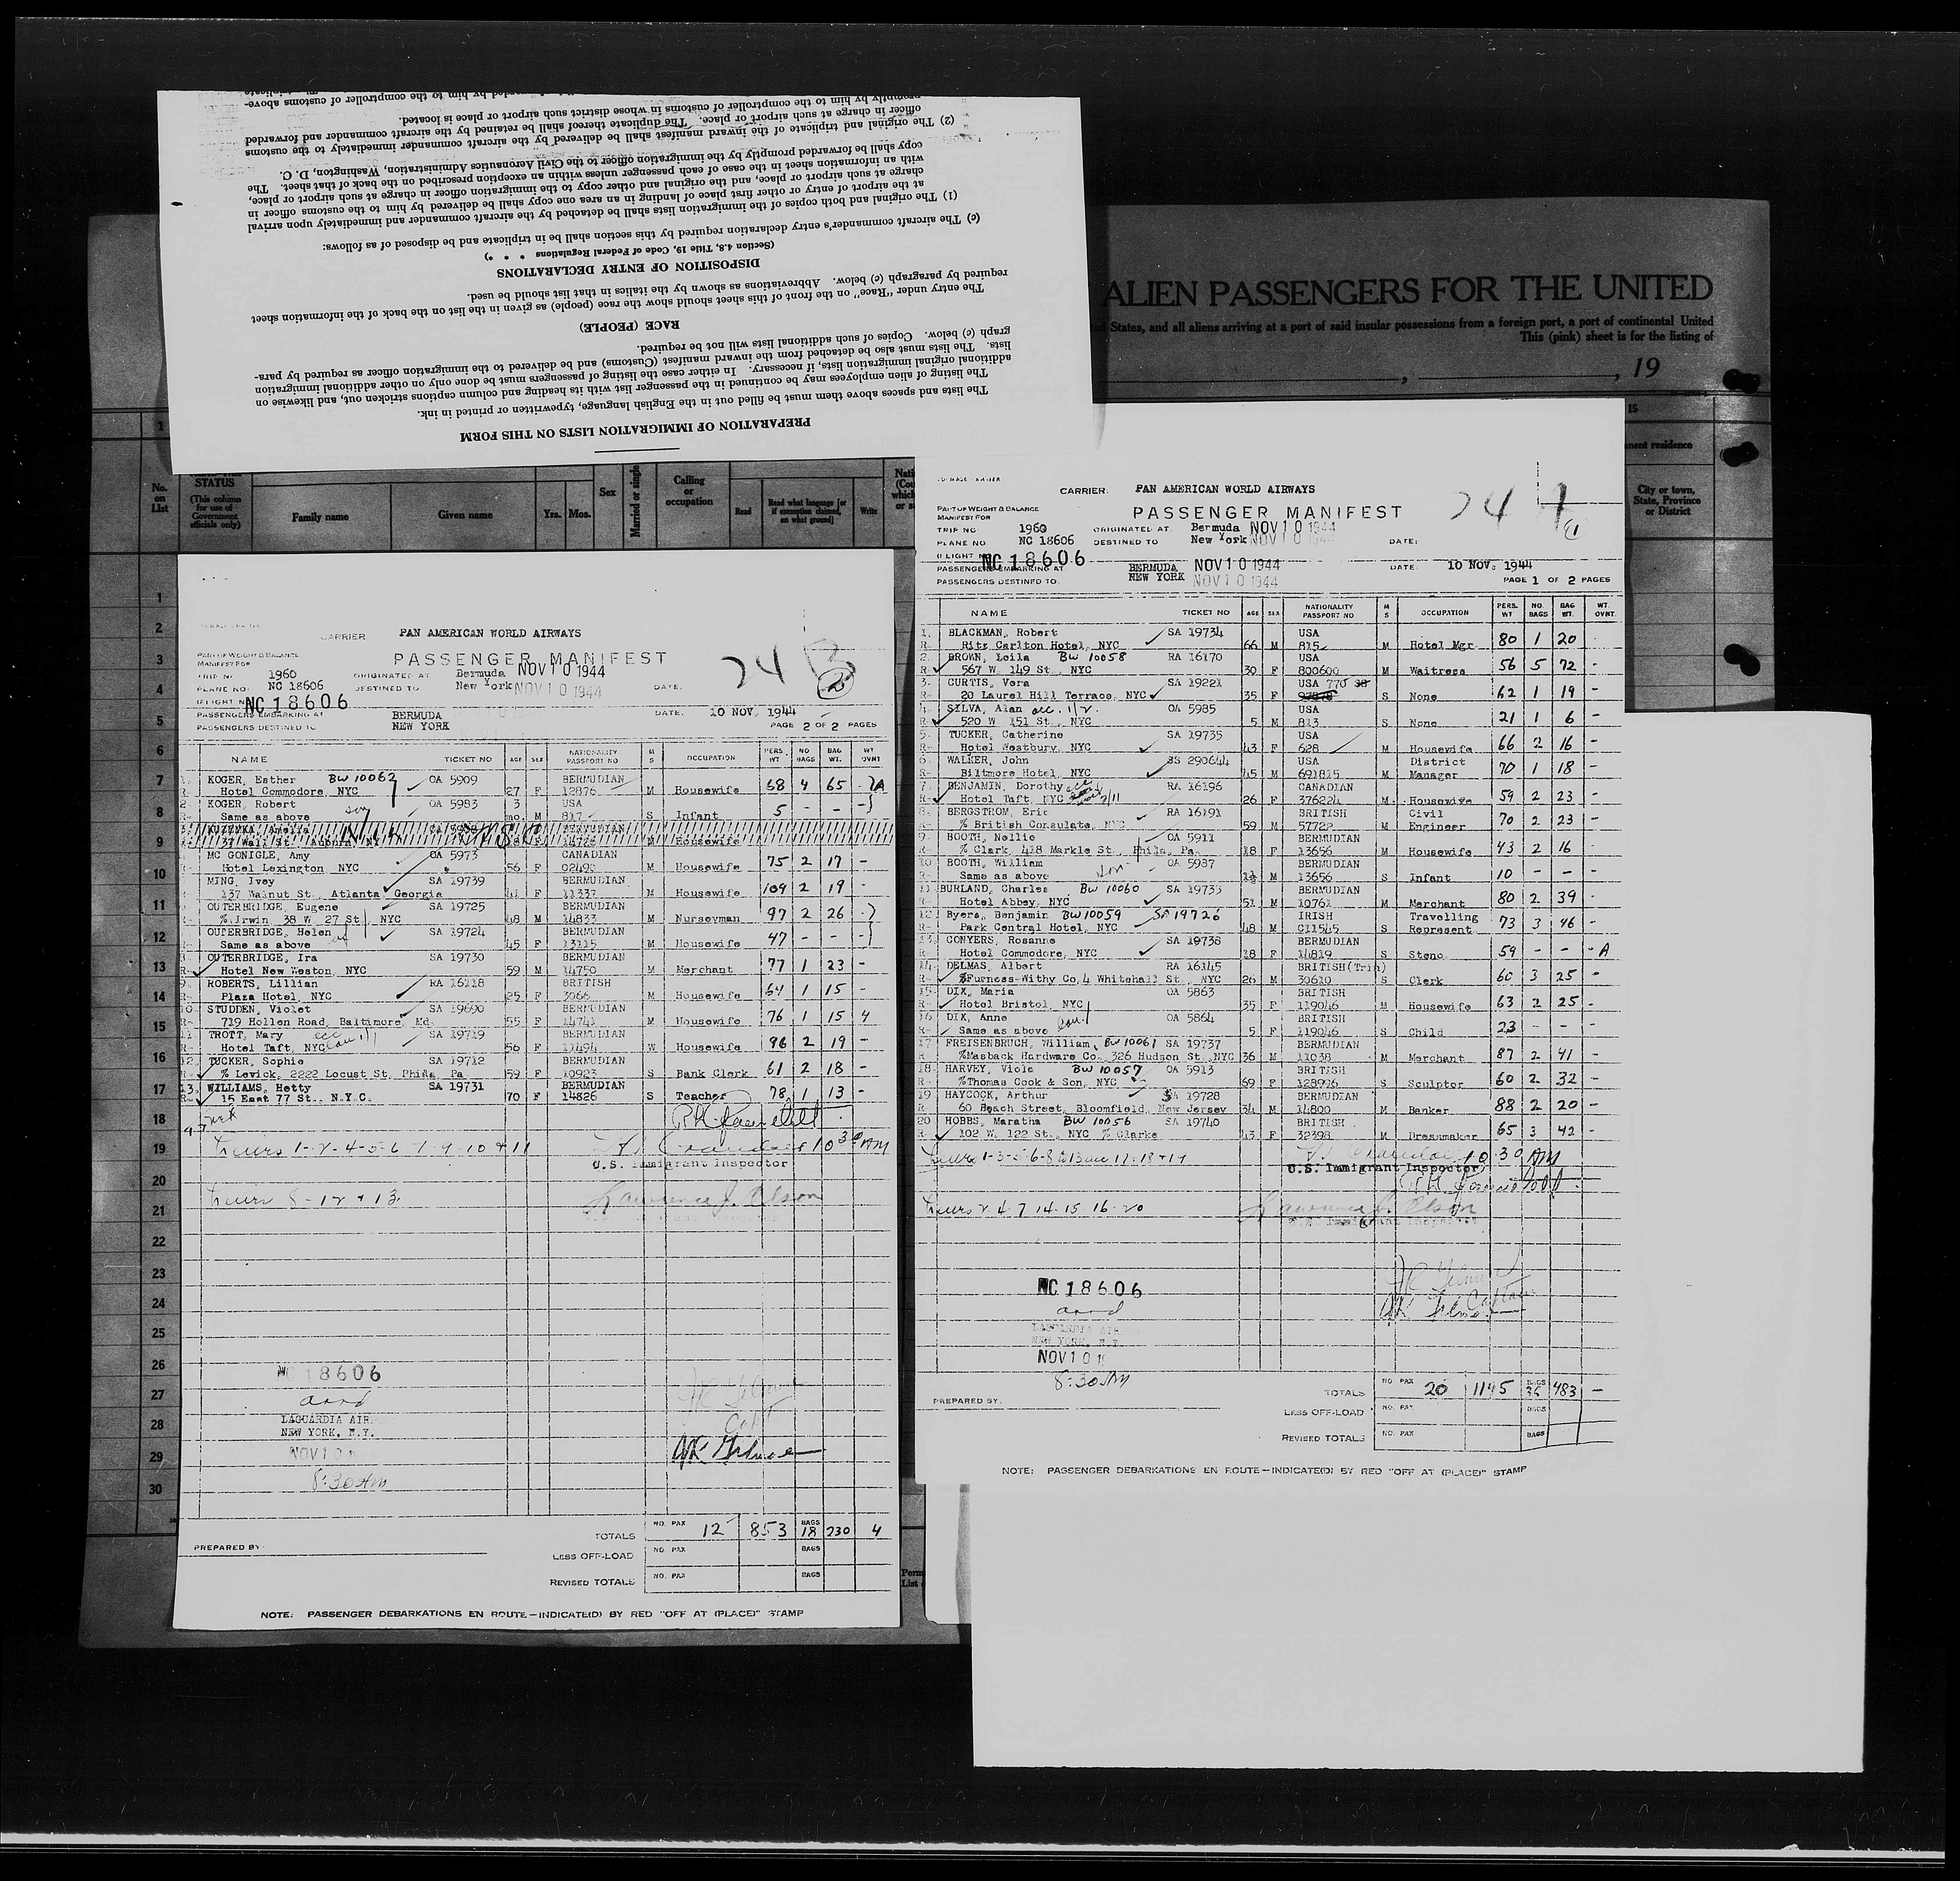 PREPARATION OF IMMIGRATION LISTS ON THIS FORM
The lists and spaces above them must be filled out in the English language, typewritten or printed in ink.
The listing of alien employees may be continued in the passenger list with its heading and column captions stricken out, and likewise on
additional original immigration lists, if necessary. In either case the listing of passengers must be done only on other additional immigration
lists. The lists must also be detached from the inward manifest (Customs) and be delivered to the immigration officer as required by para-
graph (c) below. Copies of such additional lists will not be required.
RACE (PEOPLE)
The entry under "Race" on the front of this sheet should show the race (people) as given in the list on the back of the information sheet
required by paragraph (c) below. Abbreviations as shown by the italics in that list should be used.
DISPOSITION OF ENTRY DECLARATIONS
(Section 4.8, Title 19, Code of Federal Regulations * * *)
(c) The aircraft commander's entry declaration required by this section shall be in triplicate and be disposed of as follows:
(1) The original and both copies of the immigration lists shall be detached by the aircraft commander and immediately upon arrival
at the airport of entry or other first place of landing in an area one copy shall be delivered by him to the customs officer in
charge at such airport or place, and the original and other copy to the immigration officer in charge at such airport or place,
with an information sheet in the case of each passenger unless within an exception prescribed on the back of that sheet. The
copy shall be forwarded promptly by the immigration officer to the Civil Aeronautics Administration, Washington, D. C.
(2) The original and triplicate of the inward manifest shall be delivered by the aircraft commander immediately to the customs
officer in charge at such airport or place. The duplicate thereof shall be retained by the aircraft commander and forwarded
promptly by him to the comptroller of customs in whose district such airport or place is located.
by him to the comptroller of customs above-
ALIEN PASSENGERS FOR THE UNITED
States, and all aliens arriving at a port of said insular possessions from a foreign port, a port of continental United
This (pink) sheet is for the listing of
, 19
1
15
residence
No. on List
STATUS
(This column for use of Government officials only)
Family name
Given name
Yrs.
Mos.
Sex
Married or single
Calling or occupation
Read
Read what language [or if exemption claimed, on what ground]
Write
City or town, State, Province or District
1
2
3
4
5
6
7
8
9
10
11
12
13
14
15
16
17
18
19
20
21
22
23
24
25
26
27
28
29
30
CARRIER PAN AMERICAN WORLD AIRWAYS
PART OF WEIGHT & BALANCE
MANIFEST FOR
PASSENGER MANIFEST
24
2
TRIP NO 1960 ORIGINATED AT Bermuda NOV 10 1944
PLANE NO. NC 18606 DESTINED TO New York NOV 10 1944 DATE:
NC 18606
PASSENGERS EMBARKING AT BERMUDA DATE: 10 NOV. 1944
PASSENGERS DESTINED TO NEW YORK PAGE 2 OF 2 PAGES
NAME TICKET NO AGE SEX NATIONALITY PASSPORT NO M S OCCUPATION PERS. WT NO BAGS BAG WT. WT OVNT
1. KOGER, Esther BW 10062 OA 5909 BERMUDIAN 68 4 65 - A
R- Hotel Commodore, NYC 27 F 12876 M Housewife
2. KOGER, Robert son OA 5983 3 USA 5 - - -
R- Same as above mo. M 817 S Infant
3. KUZEMKA, Amelia
37 Wall St. Auburn, NY M Housewife
MC GONIGLE, Amy OA 5973 CANADIAN 75 2 17 -
Hotel Lexington NYC 56 F M Housewife
MING, Ivey SA 19739 BERMUDIAN 109 2 19 -
137 Walnut St. Atlanta Georgia 41 F 11337 M Housewife
OUTERBRIDGE, Eugene SA 19725 BERMUDIAN 97 2 26 -
% Irwin 38 W 27 St NYC 48 M 14833 M Nurseyman
OUTERBRIDGE, Helen wf SA 19724 BERMUDIAN 47 - - -
Same as above 45 F 13115 M Housewife
8. OUTERBRIDGE, Ira SA 19730 BERMUDIAN 77 1 23 -
R- Hotel New Weston, NYC 59 M 14750 M Merchant
9. ROBERTS, Lillian RA 16118 BRITISH 64 1 15 -
R- Plaza Hotel, NYC 25 F 3066 M Housewife
10. STUDDEN, Violet SA 19690 BERMUDIAN 76 1 15 4
R- 719 Hollen Road, Baltimore, Md 55 F 14741 M Housewife
11 TROTT, Mary SA 19719 BERMUDIAN 96 2 19 -
R- Hotel Taft, NYC 56 F 11494 W Housewife
12. TUCKER, Sophie SA 19712 BERMUDIAN 61 2 18 -
R- % Levick, 2222 Locust St, Phila, Pa 59 F 10923 S Bank Clerk
13. WILLIAMS, Hetty SA 19731 BERMUDIAN 78 1 13 -
R- 15 East 77 St., N.Y.C. 70 F 14826 S Teacher
1-2-4-5-6 7-9-10 + 11 10 30 AM
U.S. Immigrant Inspector
8-12 + 13
Lawrence J. Olson
NC 18606
arrd
LAGUARDIA AIR
NEW YORK, N.Y.
NOV 10
8:30 AM
Capt
TOTALS NO. PAX 12 853 BAGS 18 230 4
PREPARED BY
LESS OFF-LOAD NO. PAX BAGS
REVISED TOTALS NO. PAX BAGS
NOTE: PASSENGER DEBARKATIONS EN ROUTE—INDICATE(D) BY RED "OFF AT (PLACE)" STAMP
CARRIER: PAN AMERICAN WORLD AIRWAYS
PART OF WEIGHT & BALANCE
MANIFEST FOR
PASSENGER MANIFEST
24
1
TRIP NO 1960 ORIGINATED AT Bermuda NOV 10 1944
PLANE NO NC 18606 DESTINED TO New York NOV 10 1944 DATE:
NC 18606
PASSENGERS EMBARKING AT BERMUDA NOV 10 1944 DATE: 10 NOV. 1944
PASSENGERS DESTINED TO: NEW YORK NOV 10 1944 PAGE 1 OF 2 PAGES
NAME TICKET NO AGE SEX NATIONALITY PASSPORT NO M S OCCUPATION PERS. WT NO. BAGS BAG WT. WT. OVNT.
1. BLACKMAN, Robert SA 19734 USA 80 1 20
R- Ritz Carlton Hotel, NYC 66 M 815 M Hotel Mgr
2. BROWN, Leila BW 10058 RA 16170 USA 56 5 72 -
R- 567 W 149 St., NYC 30 F 800600 M Waitress
3. CURTIS, Vera SA 19221 USA 770 62 1 19 -
R- 20 Laurel Hill Terrace, NYC 35 F S None
4. SILVA, Alan OA 5985 USA 21 1 6 -
R- 520 W 151 St., NYC 5 M 813 S None
5. TUCKER, Catherine SA 19735 USA 66 2 16 -
R- Hotel Westbury, NYC 43 F 628 M Housewife
6. WALKER, John SS 290644 USA District 70 1 18 -
R- Biltmore Hotel, NYC 45 M 691815 M Manager
7. BENJAMIN, Dorothy RA 16196 CANADIAN 59 2 23 -
R- Hotel Taft, NYC 26 F 376224 M Housewife
8. BERGSTROM, Eric RA 16191 BRITISH Civil 70 2 23 -
R- % British Consulate, NYC 59 M 57722 M Engineer
9. BOOTH, Nellie OA 5911 BERMUDIAN 43 2 16 -
R- % Clark, 418 Markle St., Phila, Pa. 18 F 13656 M Housewife
10. BOOTH, William son OA 5987 BERMUDIAN 10 - - -
R- Same as above M 13656 S Infant
11. BURLAND, Charles BW 10060 SA 19733 BERMUDIAN 80 2 39 -
R- Hotel Abbey, NYC 51 M 10761 M Merchant
12. Byers, Benjamin BW 10059 SA 19726 IRISH Travelling 73 3 46 -
R- Park Central Hotel, NYC 48 M C11545 S Represent.
13. CONYERS, Rosanne SA 19738 BERMUDIAN 59 - - - A
R- Hotel Commodore, NYC 18 F 14819 S Steno
14. DELMAS, Albert RA 16145 BRITISH(Trin) 60 3 25 -
R- %Furness-Withy Co, 4 Whitehall St., NYC 26 M 30610 S Clerk
15. DIX, Maria OA 5863 BRITISH 63 2 25 -
R- Hotel Bristol, NYC 35 F 119046 M Housewife
16 DIX, Anne OA 5864 BRITISH 23 - - -
R- Same as above 5 F 119046 S Child
17 FREISENBRUCH, William, BW 10061 SA 19737 BERMUDIAN 87 2 41 -
R- %Masback Hardware Co., 326 Hudson St., NYC 36 M 11038 M Merchant
18. HARVEY, Viola BW 10057 OA 5913 BRITISH 60 2 32 -
R- %Thomas Cook & Son, NYC 69 F 128996 S Sculptor
19 HAYCOCK, Arthur SA 19728 BERMUDIAN 88 2 20 -
R- 60 Beach Street, Bloomfield, New Jersey 34 M 14800 M Banker
20 HOBBS, Maratha BW 10056 SA 19740 BRITISH 65 3 42 -
R- 102 W. 122 St., NYC % Clarke 43 F 32398 M Dressmaker
10 30 AM
U.S. Immigrant Inspector
2 4 7 14 15 16 20
Lawrence J. Olson
U.S. Immigrant Inspector
NC 18606
arrd
LAGUARDIA AIR
NEW YORK, N.Y.
NOV 10
8:30 AM
Captain
TOTALS NO. PAX 20 1145 BAGS 36 483 -
PREPARED BY:
LESS OFF-LOAD NO. PAX BAGS
REVISED TOTALS NO. PAX BAGS
NOTE: PASSENGER DEBARKATIONS EN ROUTE—INDICATE(D) BY RED "OFF AT (PLACE)" STAMP